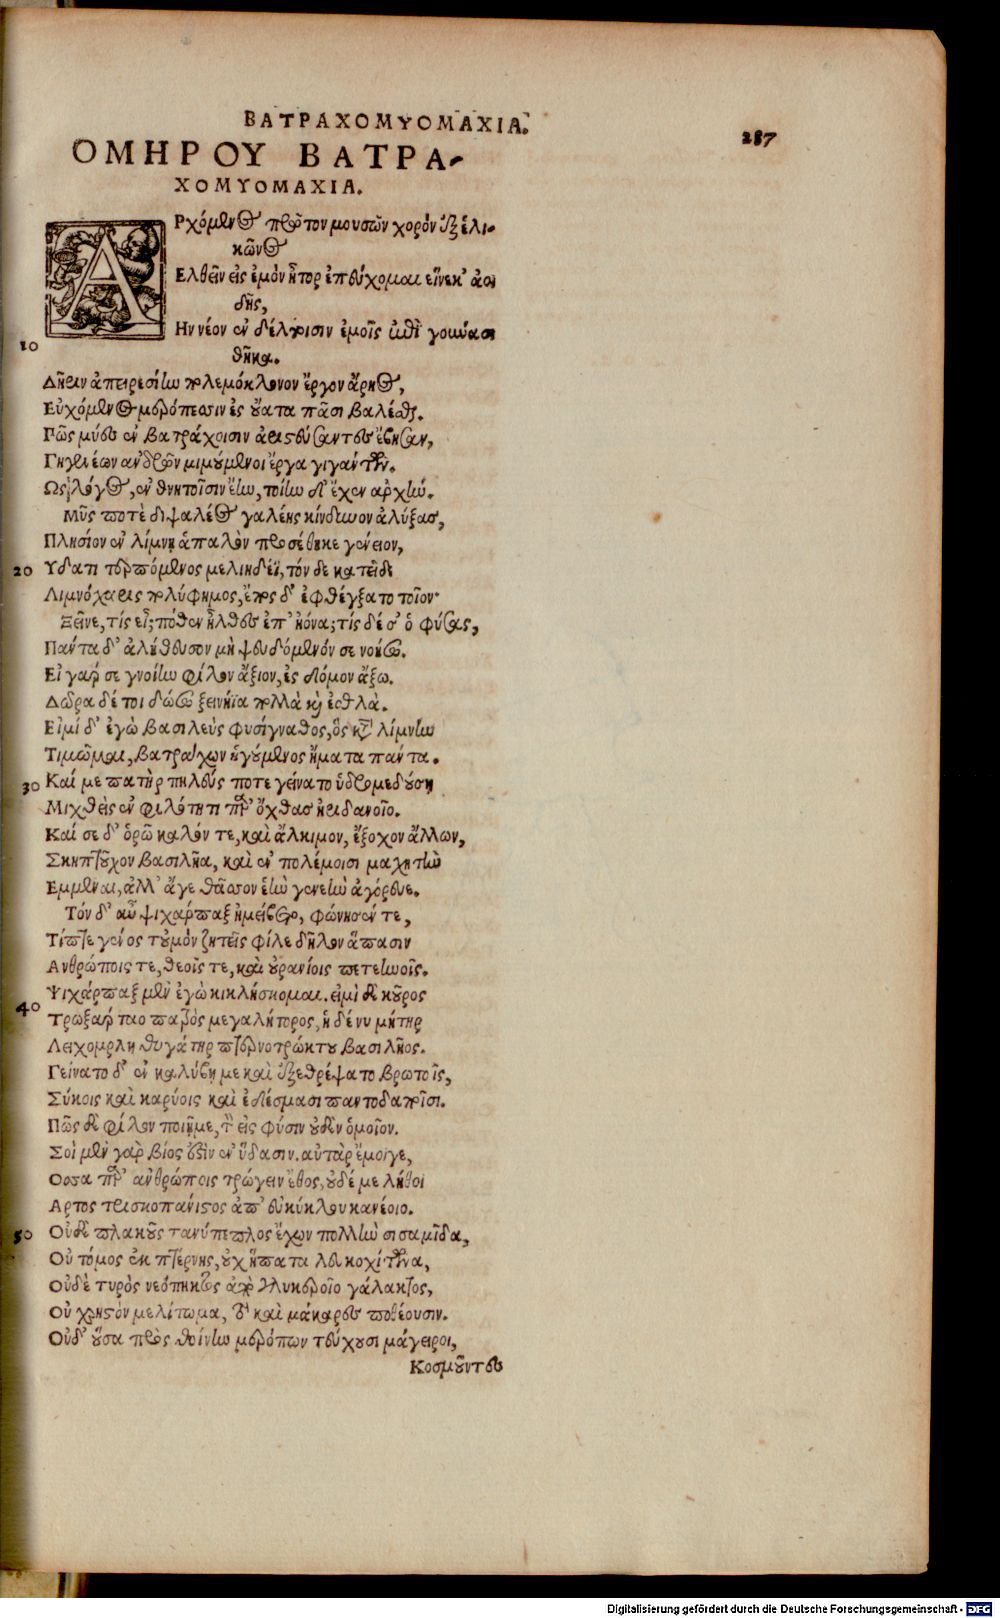 ΒΑΤΡΑΧΟΜΥΟΜΑΧΙΑ.
287
ΟΜΗΡΟΥ ΒΑΤΡΑ-
ΧΟΜΥΟΜΑΧΙΑ.
ΑΡχόμενος πρῶτον μουσῶν χορὸν ἐξ ἑλι-
κῶνος
Ελθεῖν εἰς ἐμὸν ἦτορ ἐπεύχομαι εἵνεκ' ἀοι
δῆς,
Ην νέον ἐν δέλτοισιν ἐμοῖς ἐπὶ γούνασι
10
θῆκα.
Δῆριν ἀπειρεσίην πολεμόκλονον ἔργον ἄρηος,
Εὐχόμενος μερόπεσσιν ἐς οὔατα πᾶσι βαλέσθαι.
Πῶς μύες ἐν βατράχοισιν ἀριστεύσαντες ἔβησαν,
Γηγενέων ἀνδρῶν μιμούμενοι ἔργα γιγάντων.
Ως λόγος, ἐν θνητοῖσιν ἔην, τοίην δ' ἔχεν ἀρχήν.
Μῦς ποτὲ διψαλέος γαλέης κίνδυνον ἀλύξας,
Πλησίον ἐν λίμνῃ ἁπαλὸν προσέθηκε γένειον,
20 Υδατι τερπόμενος μελιηδέϊ, τόν δε κατεῖδε
Λιμνόχαρις πολύφημος, ἔπος δ' ἐφθέγξατο τοῖον·
Ξεῖνε, τίς εἶ; πόθεν ἦλθες ἐπ' ἠόνα; τίς δέ σ' ὁ φύσας,
Πάντα δ' ἀλήθευσον μὴ ψευδόμενόν σε νοήσω.
Εἰ γάρ σε γνοίην φίλον ἄξιον, ἐς δόμον ἄξω.
Δῶρα δέ τοι δώσω ξεινήϊα πολλὰ καὶ ἐσθλὰ.
Εἰμί δ' ἐγὼ βασιλεὺς φυσίγναθος, ὃς κατὰ λίμνην
Τιμῶμαι, βατράχων ἡγούμενος ἤματα πάντα.
30 Καί με πατὴρ πηλεύς ποτε γείνατο ὑδρομεδούσῃ
Μιχθεὶς ἐν φιλότητι παρ' ὄχθας ἠριδανοῖο.
Καί σε δ' ὁρῶ καλόν τε, καὶ ἄλκιμον, ἔξοχον ἄλλων,
Σκηπτοῦχον βασιλῆα, καὶ ἐν πολέμοισι μαχητὴν
Εμμεναι, ἀλλ' ἄγε θᾶσσον ἑὴν γενεὴν ἀγόρευε.
Τόν δ' αὖ ψιχάρπαξ ἠμείβετο, φώνησέν τε,
Τίπτε γένος τοὐμὸν ζητεῖς φίλε δῆλον ἅπασιν
Ανθρώποις τε, θεοῖς τε, καὶ οὐρανίοις πετεηνοῖς.
Ψιχάρπαξ μὲν ἐγὼ κικλήσκομαι. εἰμὶ δὲ κοῦρος
40 Τρωξάρταο πατρὸς μεγαλήτορος, ἡ δέ νυ μήτηρ
Λειχομύλη θυγάτηρ πτερνοτρώκτου βασιλῆος.
Γείνατο δ' ἐν καλύβῃ με καὶ ἐξεθρέψατο βρωτοῖς,
Σύκοις καὶ καρύοις καὶ ἐδέσμασι παντοδαποῖσι.
Πῶς δὲ φίλον ποιῇ με, τὸν εἰς φύσιν οὐδὲν ὁμοῖον.
Σοὶ μὲν γὰρ βίος ἐστὶν ἐν ὕδασιν. αὐτὰρ ἔμοιγε,
Οσσα παρ' ἀνθρώποις τρώγειν ἔθος, οὐδέ με λήθει
Αρτος τρισκοπάνιστος ἀπ' εὐκύκλου κανέοιο.
50 Οὐδὲ πλακοῦς τανύπεπλος ἔχων πολλὴν σισαμῖδα,
Οὐ τόμος ἐκ πτέρνης, οὐχ ἥπατα λευκοχίτωνα,
Οὐδὲ τυρὸς νεόπηκτος ἀπὸ γλυκεροῖο γάλακτος,
Οὐ χρηστὸν μελίτωμα, τὸ καὶ μάκαρες ποθέουσιν.
Οὐδ' ὅσα πρὸς θοίνην μερόπων τεύχουσι μάγειροι,
Κοσμοῦντες
Digitalisierung gefördert durch die Deutsche Forschungsgemeinschaft - DFG